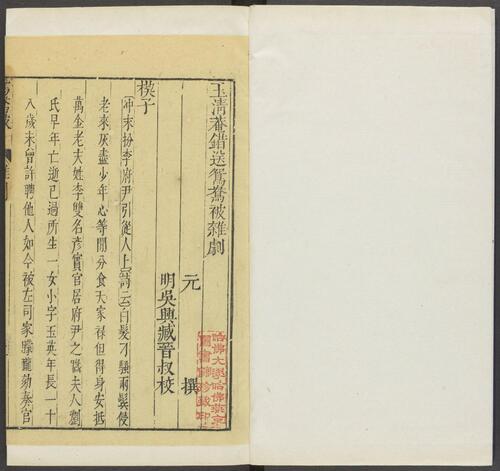 玉清菴錯送鴛鴦被雜劇
元 撰
明吳興臧晉叔校
楔子
冲末扮李府尹引從人上詩云白髮刁騷兩鬢侵
老來灰盡少年心等閒分食天家祿但得身安抵
萬金老夫姓李雙名彥實官居府尹之職夫人劉
氏早年亡逝已過所生一女小字玉英年長一十
八歲未曾許聘他人如今被左司家朦朧劾奏官
鴛鴦被
雜劇